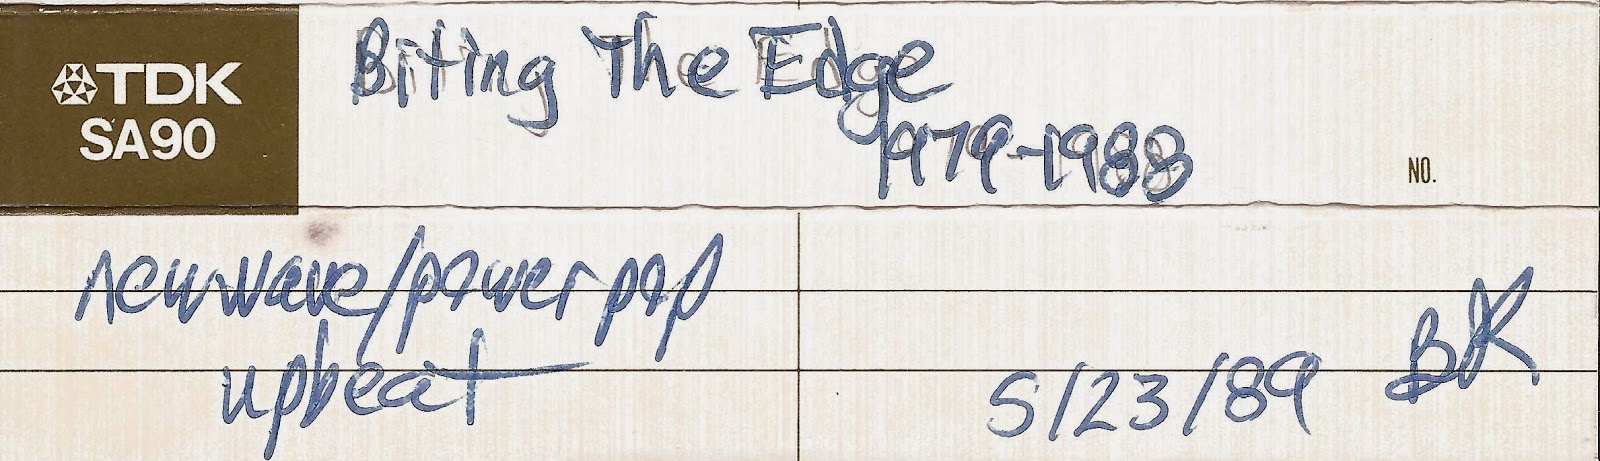 TDK
SA90
Biting The Edge
1979-1988
NO.
new wave/power pop
upbeat
5/23/89 BK